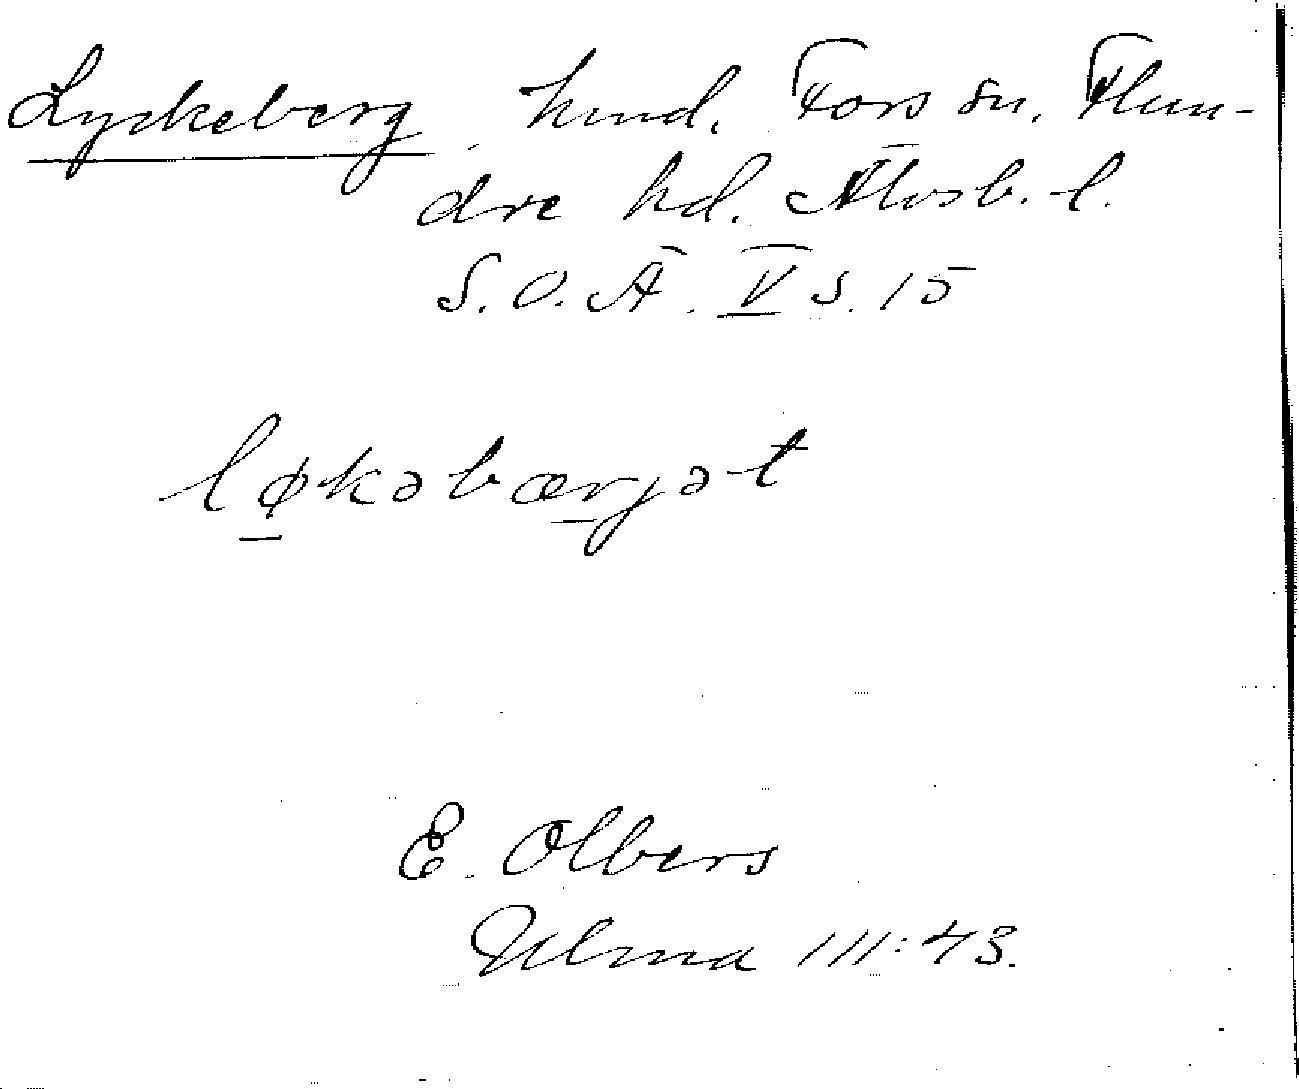 Lyckeberg hmd. Fors sn. Flun-
dre hd. Älvsb. l.
S. O. Ä. V s. 15
løkəbærjət
E. Olbers
Ulma 111:43.